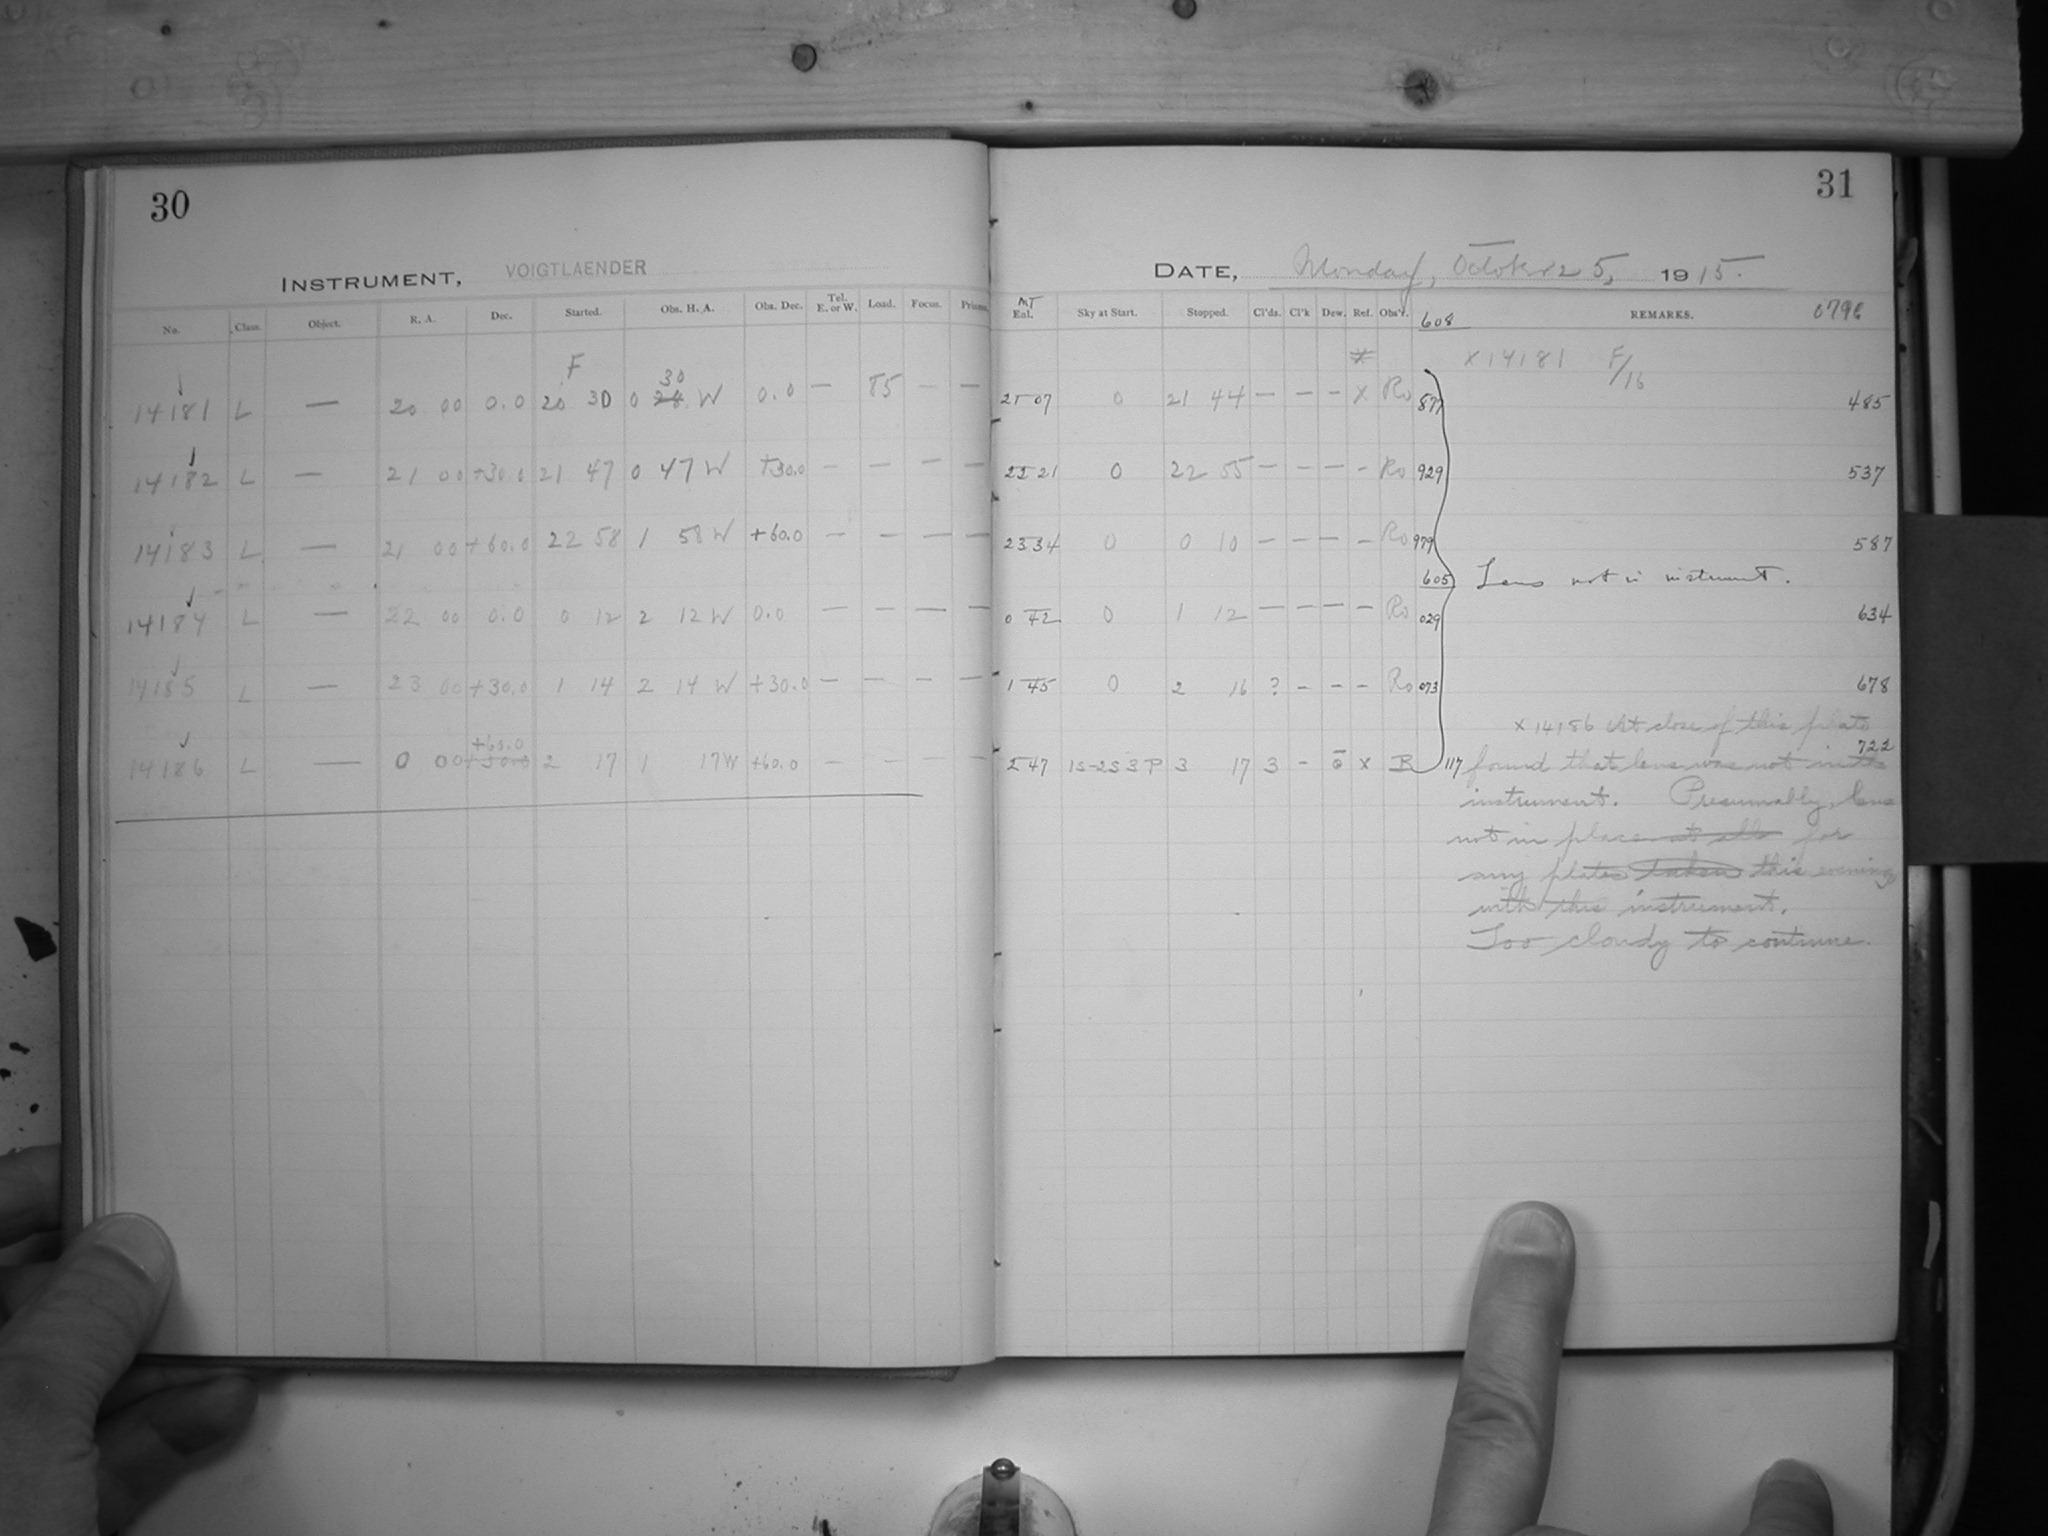 30
31
INSTRUMENT, VOIGTLAENDER
DATE, Monday, October 25, 1915.
No. Class. Object. R. A. Dec. Started. Obs. H. A. Obs. Dec. Tel. E. or W. Load. Focus. Prisms. MT Enl. Sky at Start. Stopped. Cl'ds. Cl'k Dew. Ref. Obs'r. 608 REMARKS. 0796
F x14181 F/16
14181 L — 20 00 0.0 20 30 0 30 28 W 0.0 — 85 — — 21 07 0 21 44 — — — x Ro 877 485
14182 L — 21 00 +30.0 21 47 0 47 W +30.0 — — — — 22 21 0 22 55 — — — - Ro 929 537
14183 L — 21 00 +60.0 22 58 1 58 W +60.0 — — — — 23 34 0 0 10 — — — — Ro 979 587
605 Lens not in instrument.
14184 L — 22 00 0.0 0 12 2 12 W 0.0 — — — — 0 42 0 1 12 — — — — Ro 029 634
14185 L — 23 00 +30.0 1 14 2 14 W +30.0 — — — — 1 45 0 2 16 ? - - - Ro 073 678
x 14186 At close of this plate
14186 L — 0 00 +60.0 +30.0 2 17 1 17 W +60.0 — — — — 2 47 1S-2S 3 P 3 17 3 - o x B 117 found that lens was not in the 722
instrument. Presumably, lens
not in place at all for
any plates taken this evening
with this instrument.
Too cloudy to continue.